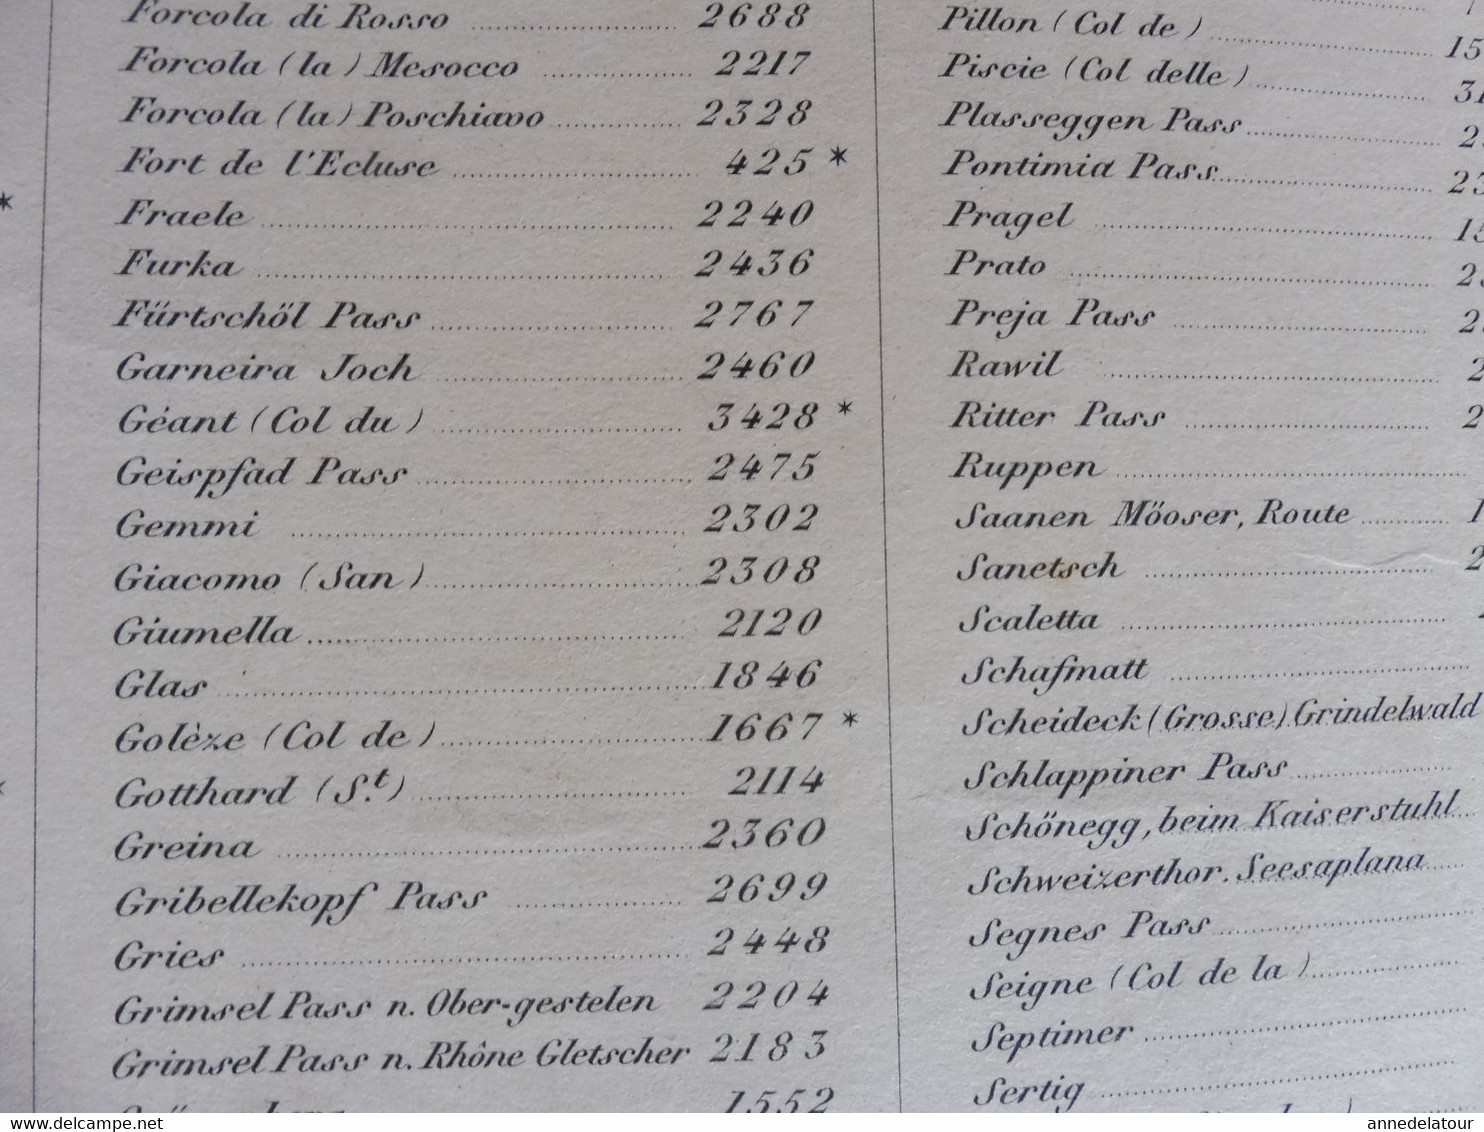 Forcola di Rosso 2688
Forcola (la) Mesocco 2217
Forcola (la) Poschiavo 2328
Fort de l'Ecluse 425 *
Fraele 2240
Furka 2436
Fürtschöl Pass 2767
Garneira Joch 2460
Géant (Col du) 3428 *
Geispfad Pass 2475
Gemmi 2302
Giacomo (San) 2308
Giumella 2120
Glas 1846
Golèze (Col de) 1667 *
Gotthard (St.) 2114
Greina 2360
Gribellekopf Pass 2699
Gries 2448
Grimsel Pass n. Ober-gestelen 2204
Grimsel Pass n. Rhône Gletscher 2183
1552
Pillon (Col de) 15
Piscie (Col delle) 31
Plasseggen Pass 2
Pontimia Pass 23
Pragel 15
Prato 2
Preja Pass 2
Rawil 2
Ritter Pass 2
Ruppen
Saanen Möoser, Route 1
Sanetsch 2
Scaletta
Schafmatt
Scheideck (Grosse) Grindelwald
Schlappiner Pass
Schönegg, beim Kaiserstuhl
Schweizerthor. Seesaplana
Segnes Pass
Seigne (Col de la)
Septimer
Sertig
delcampe.net
annedelatour